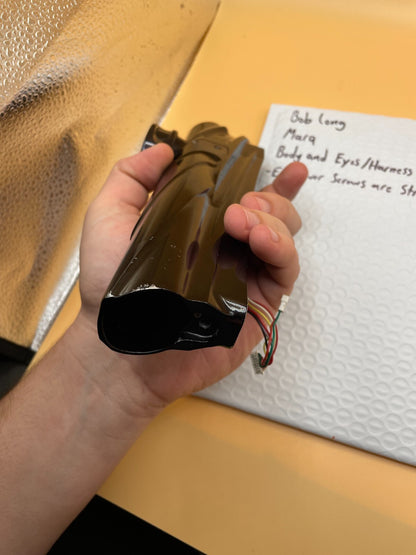 Bob Long
Marq
Body and Eyes/Harness
screws are